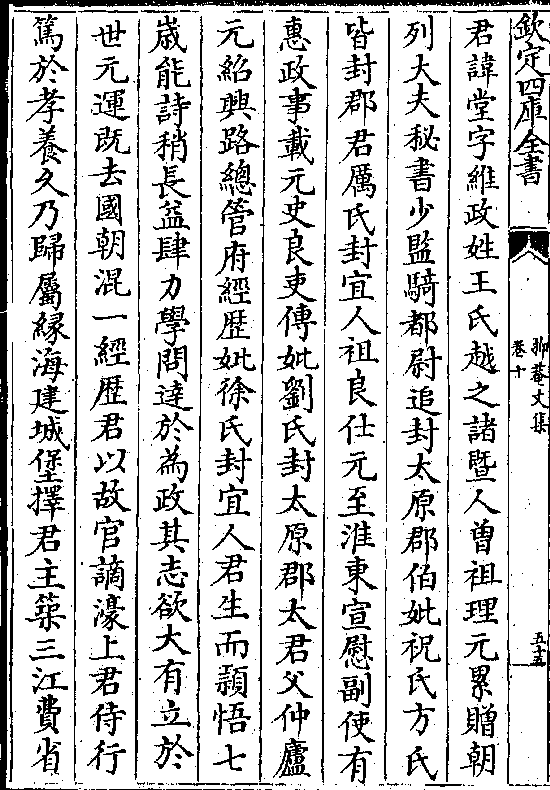 欽定四庫全書
抑菴文集
卷十
五十五
君諱堂字維政姓王氏越之諸暨人曽祖理元累贈朝
列大夫秘書少監騎都尉追封太原郡伯妣祝氏方氏
皆封郡君厲氏封宜人祖良仕元至淮東宣慰副使有
惠政事載元史良吏傳妣劉氏封太原郡太君父仲廬
元紹興路總管府經歴妣徐氏封宜人君生而頴悟七
嵗能詩稍長益肆力學問達於為政其志欲大有立於
世元運既去國朝混一經歴君以故官謫濠上君侍行
篤於孝養久乃歸屬緣海建城堡擇君主築三江費省